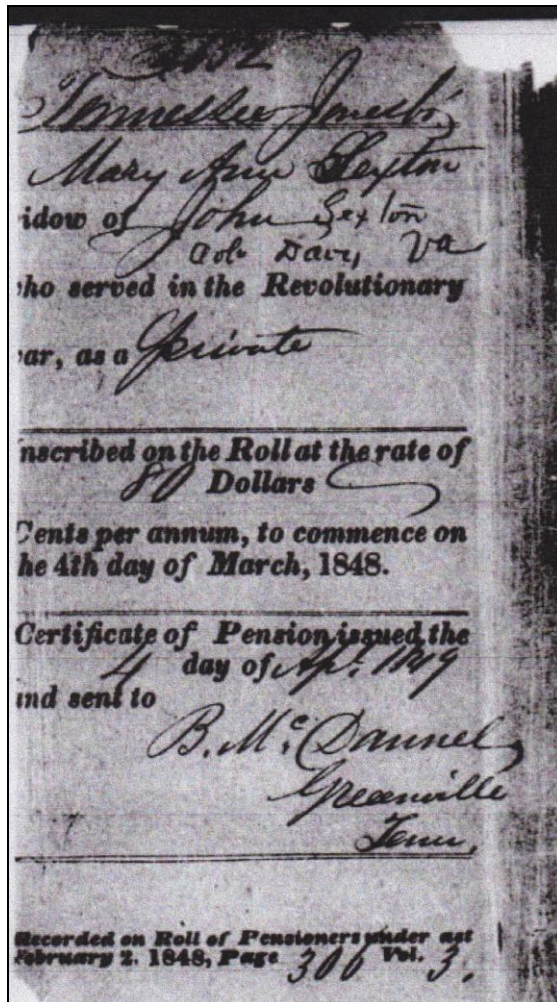 Tennessee Jonesbo
Mary Ann Sexton
idow of John Sexton
Col. Davis, Va
ho served in the Revolutionary
ar, as a private
nscribed on the Roll at the rate of
80 Dollars
Cents per annum, to commence on
he 4th day of March, 1848.
Certificate of Pension issued the
4 day of Apl. 1849
and sent to
B. McDannel,
Greenville
Tenn,
Recorded on Roll of Pensioners under act
February 2, 1848, Page 306 Vol. 3.